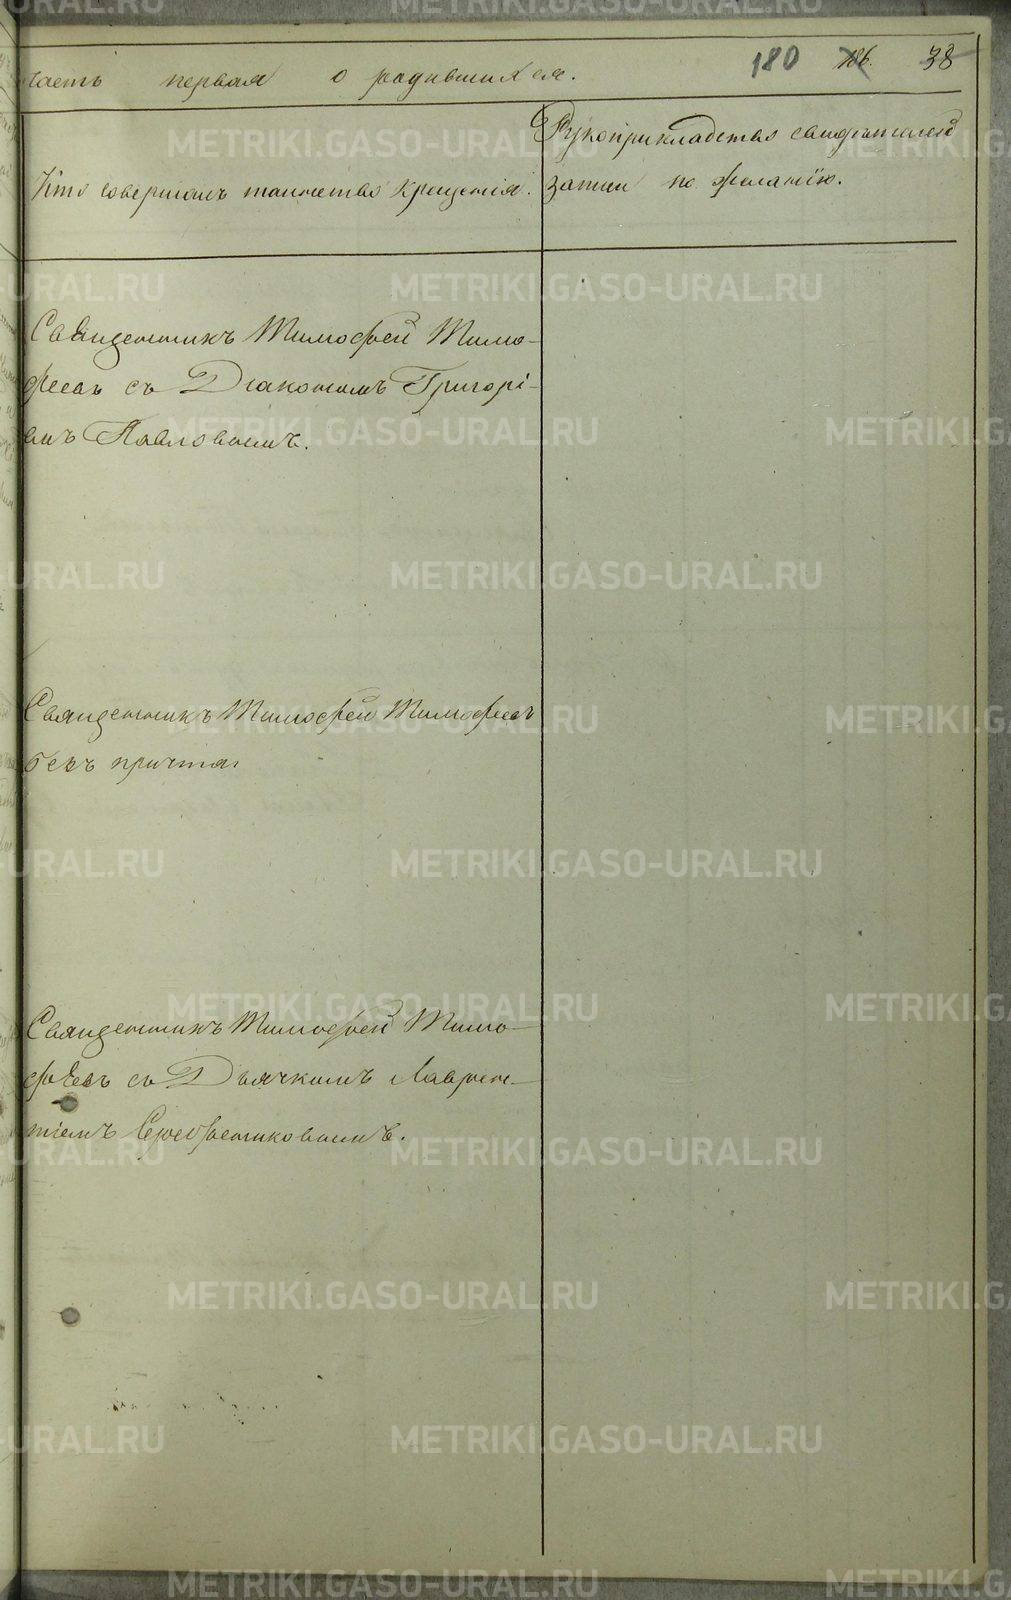 180 186. 38
часть первая о родившихся.
Кто совершалъ таинство крещенія.
Рукоприкладство свидѣтелей
записи по желанію.
Священникъ Тимофей Тимо-
феевъ съ Діакономъ Григорі-
емъ Павловымъ.
Священникъ Тимофей Тимофеевъ
безъ причта.
Священникъ Тимофей Тимо-
фѣевъ съ Дьячкомъ Лаврен-
тіемъ Серебрениковымъ.
METRIKI.GASO-URAL.RU